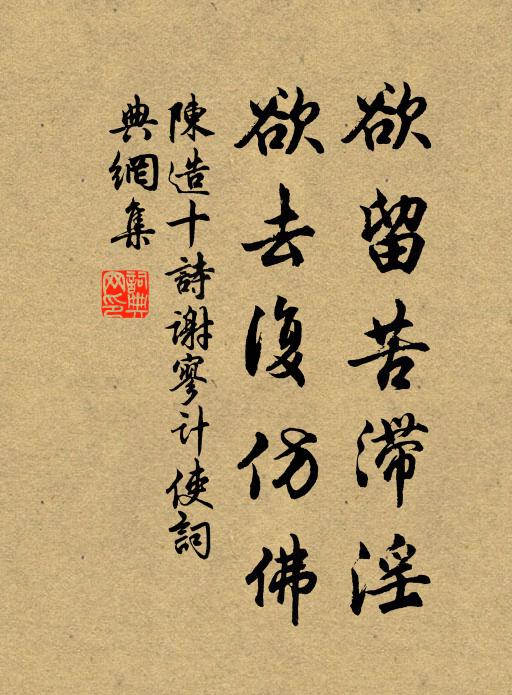 欲留苦滞淫
欲去復仿佛
陳造十詩謝寥计使詞
典網集
詞典网印